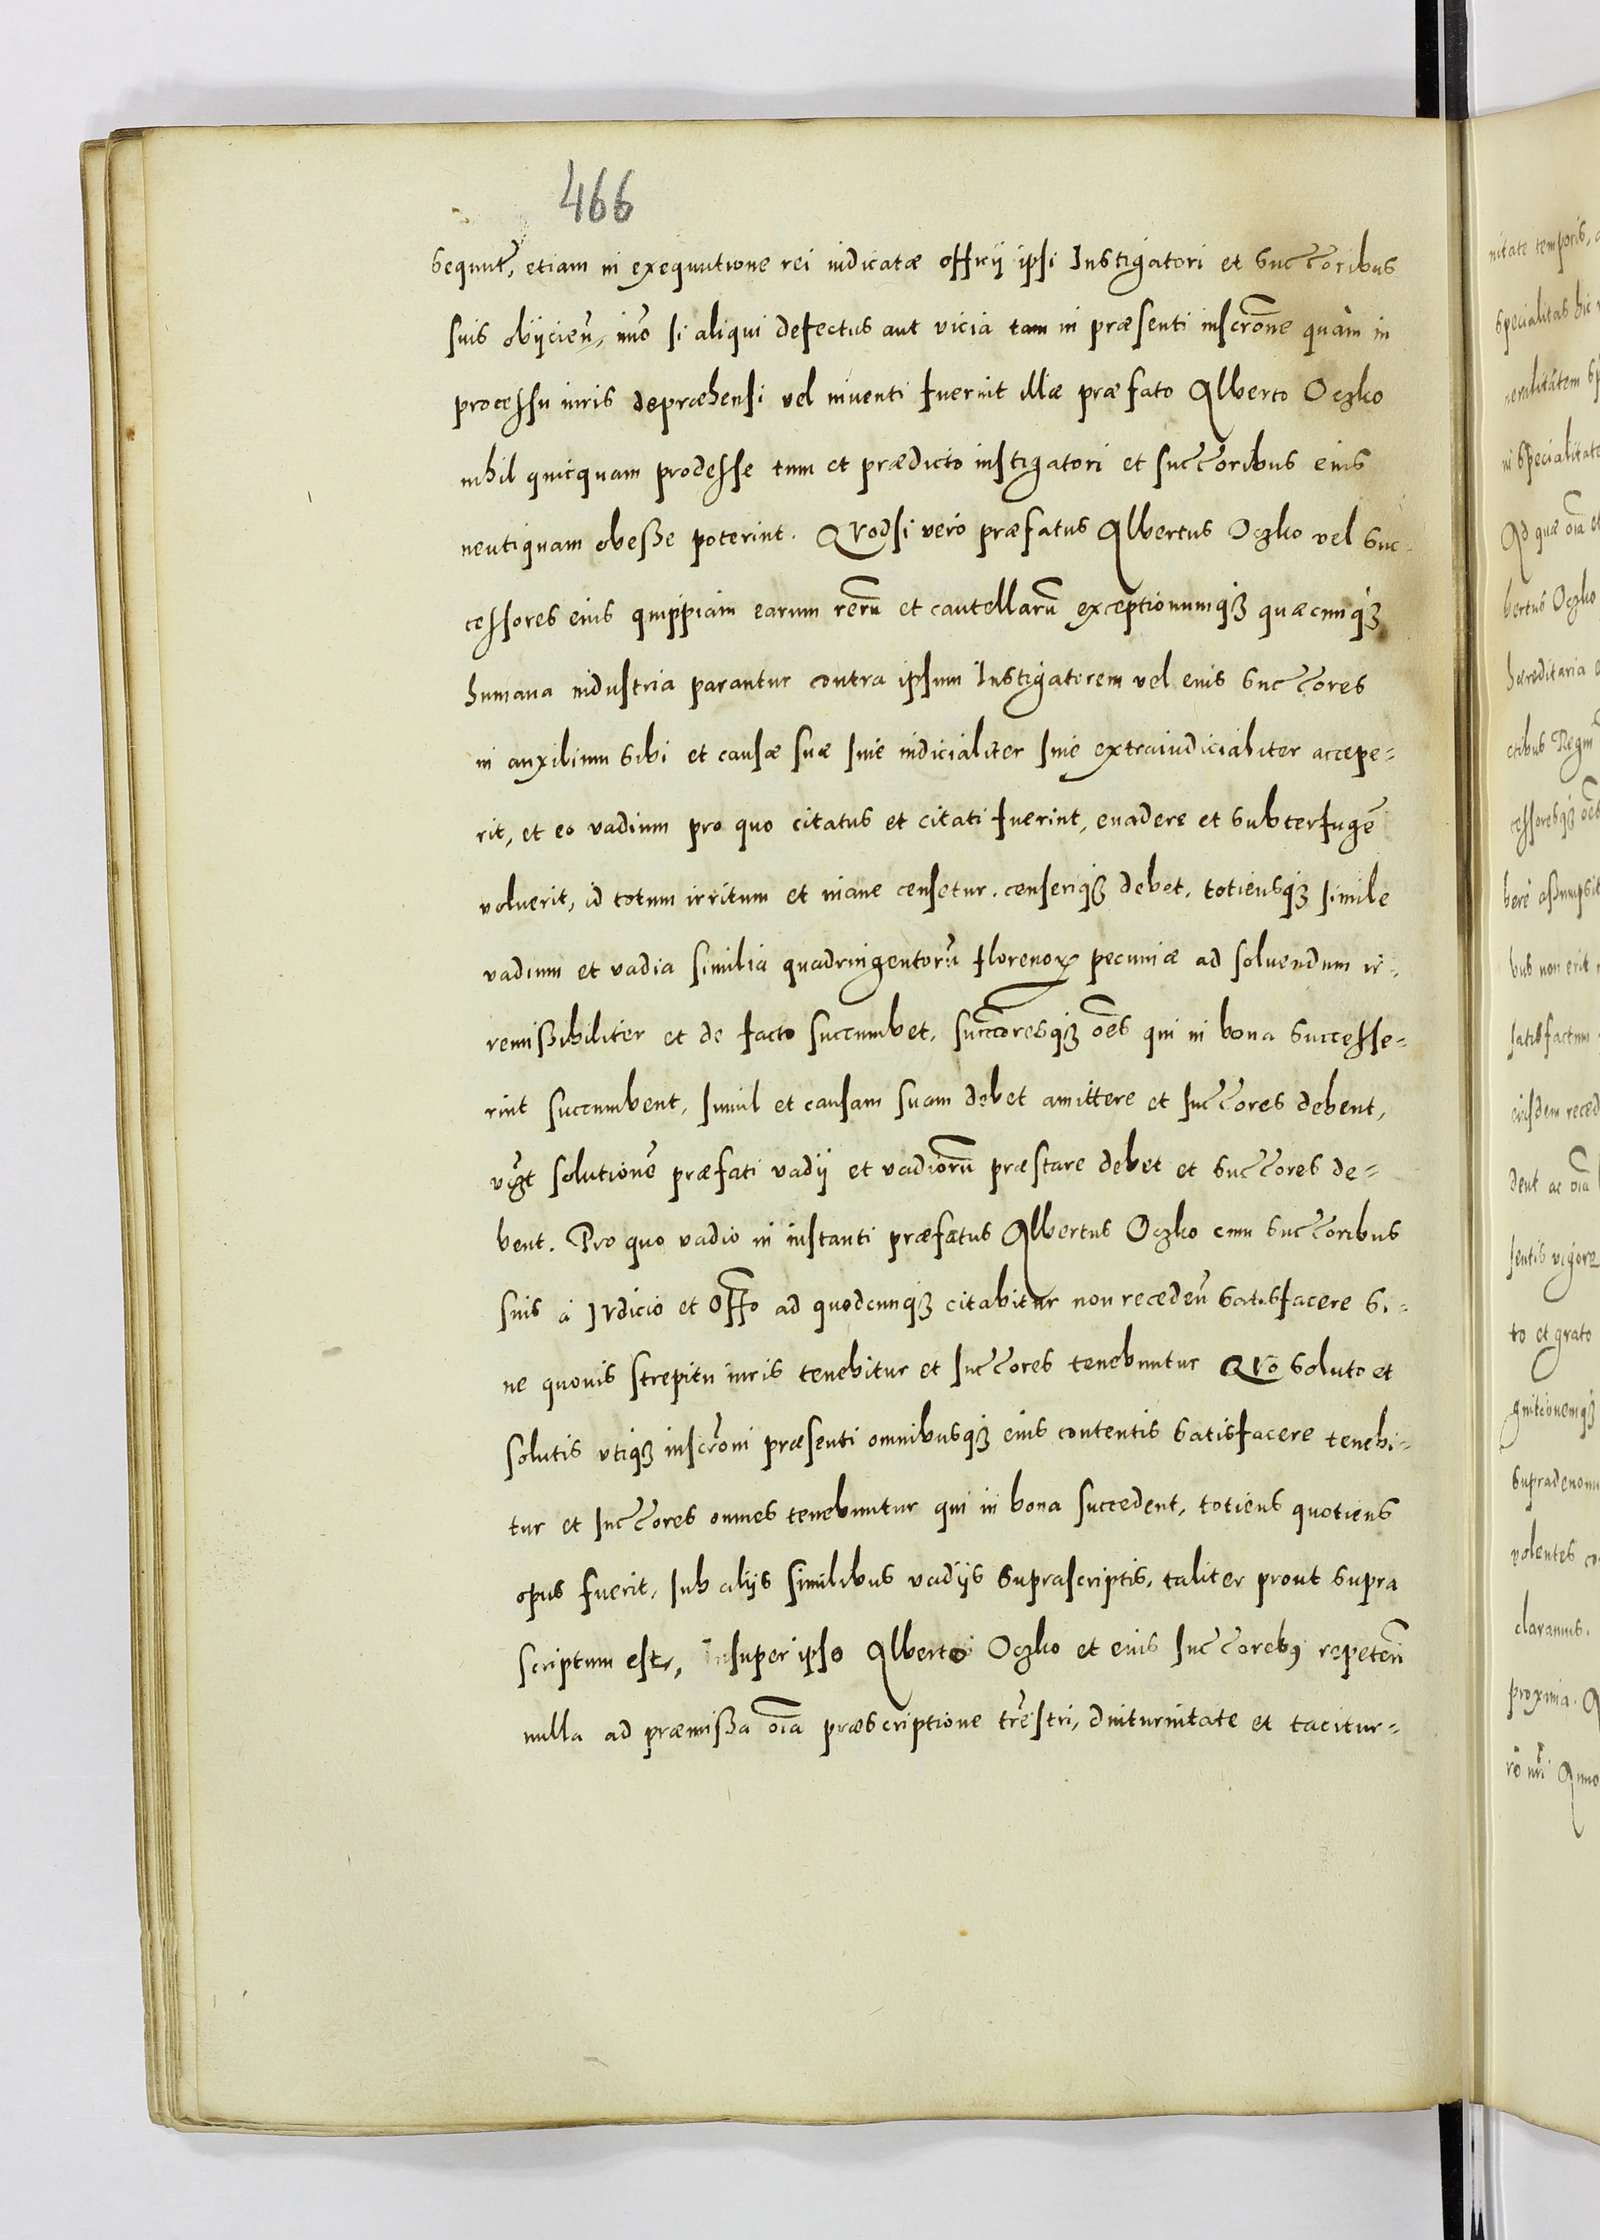 466
sequut̃, etiam in exequutione rei iudicatæ officij ipsi Instigatori et Succ̃oribus
suis obijcien̄, imo si aliqui defectus aut vicia tam in præsenti inscrōne quàm in
processu iuris depræhensi vel inuenti fuerint illæ præfato Alberto Oczko
nihil quicquam prodesse tum et prædicto instigatori et succ̃oribus eius
neutiquam obesse poterint. Quodsi verò præfatus Albertus Oczko vel Suc-
cessores eius quippiam earum rerū et cautellarū exceptionumqȝ quæcunqȝ
humana industria parantur contra ipsum Instigatorem vel eius Succ̃ores
in auxilium sibi et causæ suæ siue iudicialiter siue extraiudicialiter accepe-
rit, et eo vadium pro quo citatus et citati fuerint, euadere et subterfugē
voluerit, id totum irritum et inane censetur. censeriqȝ debet. totiensqȝ simile
vadium et vadia similia quadringentorū florenoꝝ pecuniæ ad soluendum ir-
remissibiliter et de facto succumbet. succ̃oresqȝ oēs qui in bona successe-
rint succumbent, simul et causam suam debet amittere et succ̃ores debent,
solutionē præfati vadij et vadiorū præstare debet et succ̃ores de-
bent. Pro quo vadio in instanti præfatus Albertus Oczko cum succ̃oribus
suis à Iudicio et Offo ad quodcunqȝ citabitur non recedeñ satisfacere si-
ne quouis strepitu iuris tenebitur et succ̃ores tenebuntur Quo soluto et
solutis vtiqȝ inscrōni præsenti omnibusqȝ eius contentis satisfacere tenebi-
tur et succ̃ores omnes tenebuntur qui in bona succedent, totiens quotiens
opus fuerit, sub alijs similibus vadijs suprascriptis, taliter prout supra
scriptum est, Insuper ipso Alberto Oczko et eius succ̃orebꝰ repeteñ
nulla ad præmissa oīa præscriptione tr̃estri, diuturnitate et tacitur-
nitate temporis,
specialitas hic
neralitatem
in specialitate
Ad quæ oīa et
bertus Oczko
hæreditaria
ctibus Regni
cessoresqȝ oēs
bere assumpsit
bus non erit
satisfactum
eiusdem reced
dent ac oīa
sentis vigore
to et grato
gnitionemqȝ
supradenomi
volentes co
claramus.
proxima.
rō nr̄i Anno